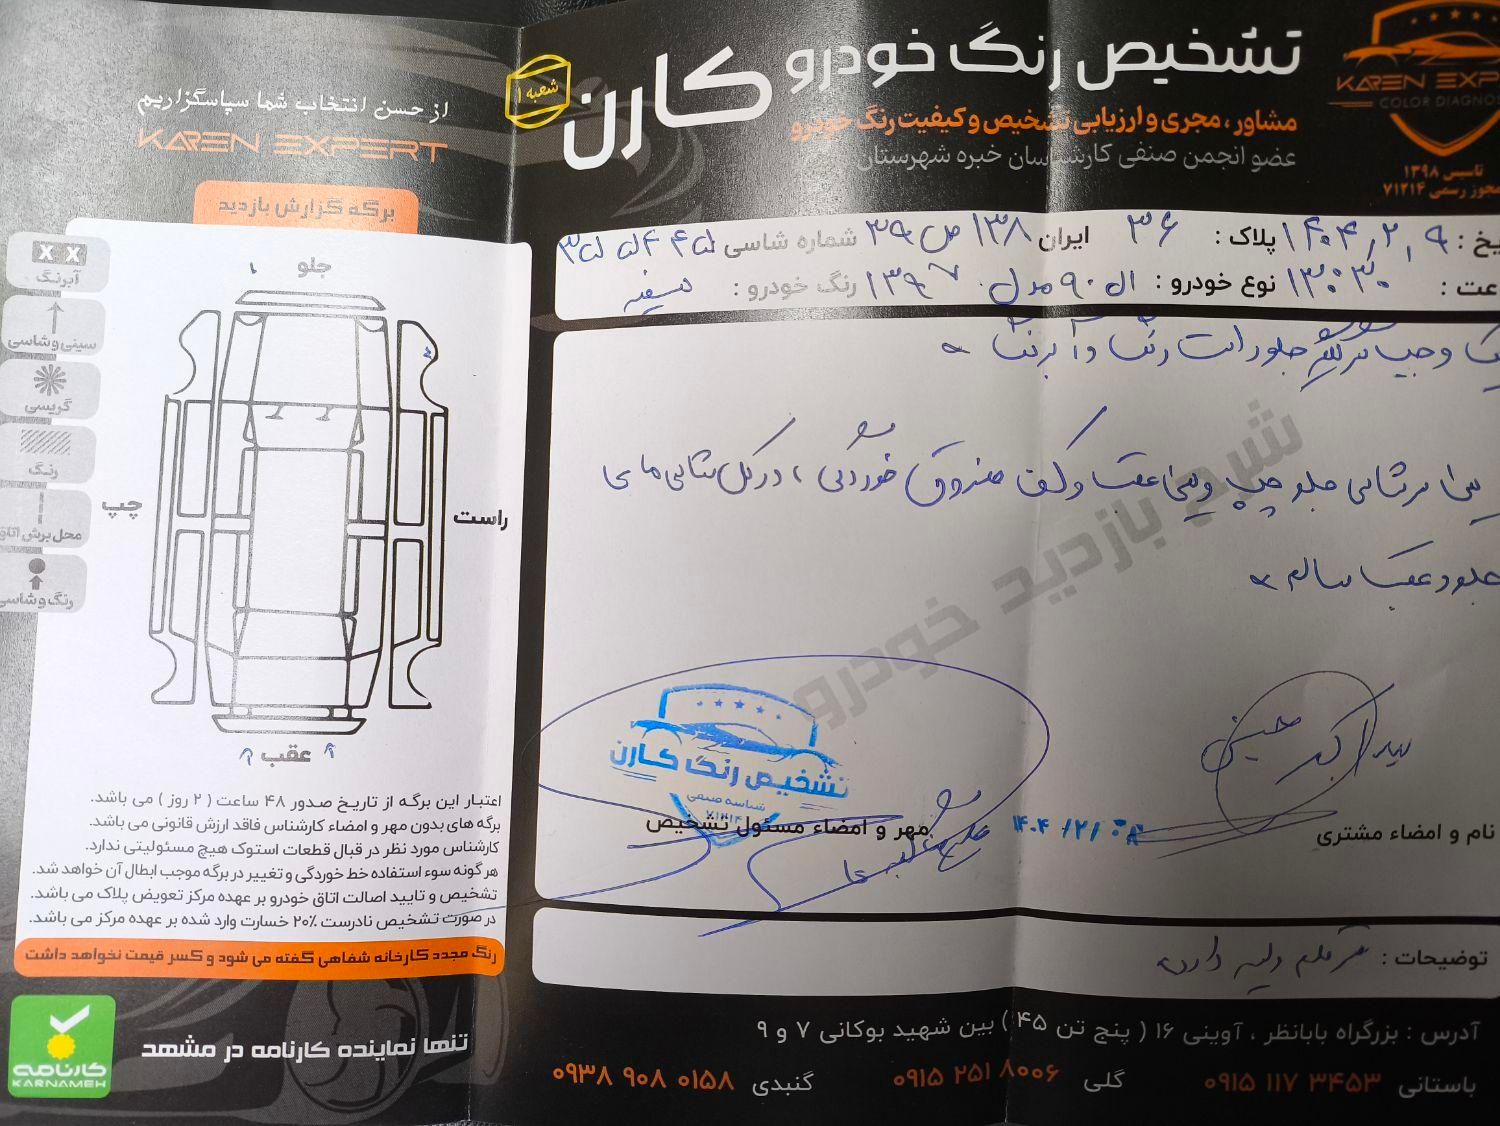 تشخیص رنگ خودرو کارن
شعبه ۱
مشاور، مجری و ارزیابی تشخیص و کیفیت رنگ خودرو
عضو انجمن صنفی کارشناسان خبره شهرستان
KAREN EXP
COLOR DIAGNO
تاسیس ۱۳۹۸
مجوز رسمی ۷۱۲۱۴
یخ : ۱۴۰۴,۲,۹ پلاک : ۳۶ ایران ۱۳۸ ص ۳۹ شماره شاسی
عت : ۱۳:۳۰ نوع خودرو : ال ۹۰ مدل ۱۳۹۷ رنگ خودرو : سفید
جلو راست رنگ و آبرنگ
سرشاسی جلو چپ و سینی عقب و کف صندوق خوردگی ، در کل شاسی های
جلو و عقب سالم
شرح بازدید خودرو
تشخیص رنگ کارن
شناسه صنفی
۷۱۲۱۴
نام و امضاء مشتری
مهر و امضاء مسئول تشخیص
۱۴۰۴/۲/۰۸
توضیحات :
آدرس : بزرگراه بابانظر ، آوینی ۱۶ ( پنج تن ۴۵ ) بین شهید بوکانی ۷ و ۹
باستانی ۰۹۱۵ ۱۱۷ ۳۴۵۳ گلی ۰۹۱۵ ۲۵۱ ۸۰۰۶ گنبدی ۰۹۳۸ ۹۰۸ ۰۱۵۸
از حسن انتخاب شما سپاسگزاریم
KAREN EXPERT
برگه گزارش بازدید
X X
آبرنگ
سینی و شاسی
گریسی
رنگ
محل برش اتاق
رنگ و شاسی
جلو
چپ
راست
عقب
اعتبار این برگه از تاریخ صدور ۴۸ ساعت ( ۲ روز ) می باشد.
برگه های بدون مهر و امضاء کارشناس فاقد ارزش قانونی می باشد.
کارشناس مورد نظر در قبال قطعات استوک هیچ مسئولیتی ندارد.
هر گونه سوء استفاده خط خوردگی و تغییر در برگه موجب ابطال آن خواهد شد.
تشخیص و تایید اصالت اتاق خودرو بر عهده مرکز تعویض پلاک می باشد.
در صورت تشخیص نادرست ۲۰٪ خسارت وارد شده بر عهده مرکز می باشد.
رنگ مجدد کارخانه شفاهی گفته می شود و کسر قیمت نخواهد داشت
تنها نماینده کارنامه در مشهد
کارنامه
KARNAMEH